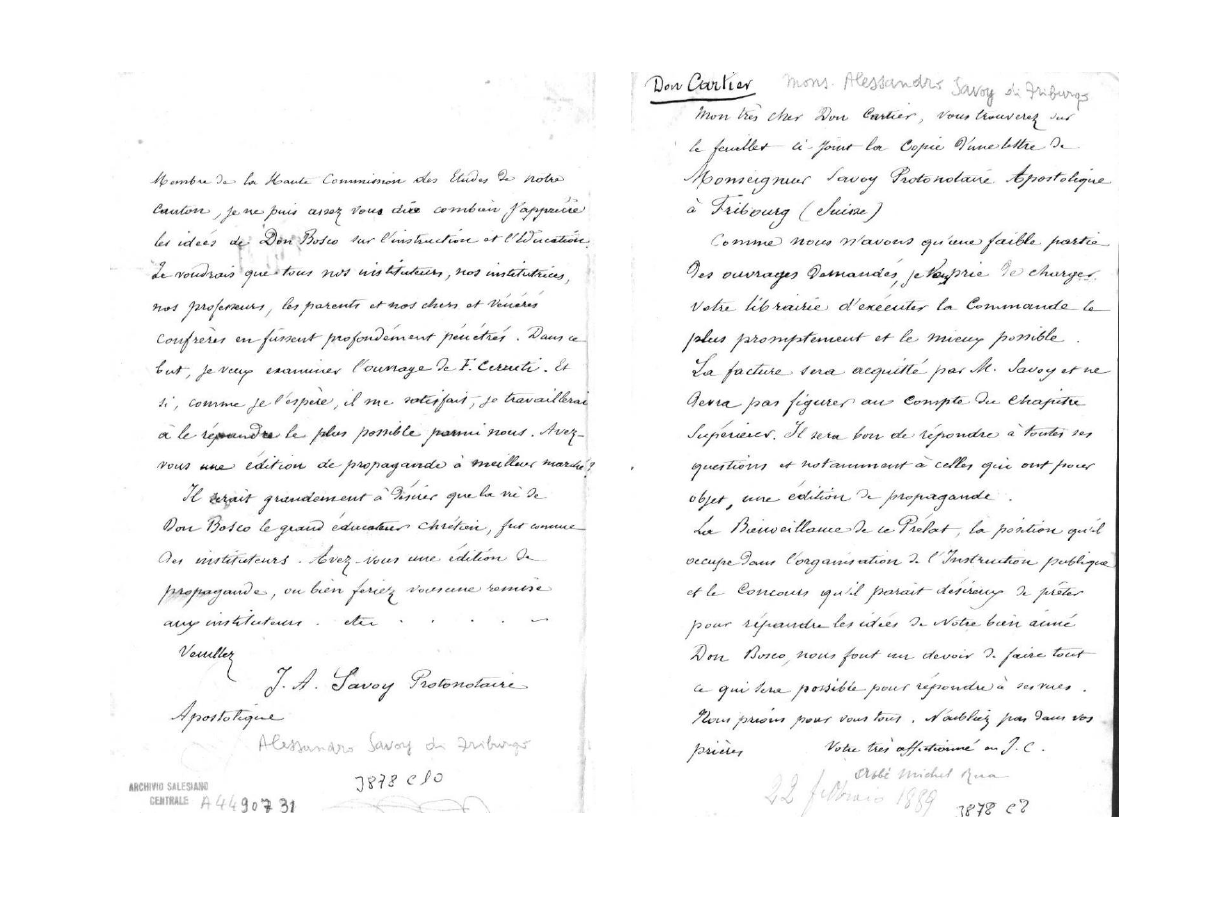 Membre de la Haute Commission des Etudes de notre
Canton, je ne puis assez vous dire combien j'apprécie
les idées de Don Bosco sur l'instruction et l'Education.
Je voudrais que tous nos instituteurs, nos institutrices,
nos professeurs, les parents et nos chers et vénérés
confrères en fussent profondément pénétrés. Dans ce
but, je veux examiner l'ouvrage de F. Cerruti. Et
si, comme je l'espère, il me satisfait, je travaillerai
à le répandre le plus possible parmi nous. Avez-
vous une édition de propagande à meilleur marché?
Il serait grandement à désirer que la vie de
Don Bosco le grand éducateur chrétien, fut connue
des instituteurs. Avez-vous une édition de
propagande, ou bien feriez vous une remise
aux instituteurs. etc . . . . .
Veuillez
J. A. Savoy Protonotaire
Apostolique
Alessandro Savoy di Friburgo
3878 C10
ARCHIVIO SALESIANO
CENTRALE A4490731
Don Cartier mons. Alessandro Savoy di Friburgo
Mon très cher Don Cartier, vous trouverez sur
le feuillet ci-joint la Copie d'une lettre de
Monseigneur Savoy Protonotaire Apostolique
à Fribourg (Suisse)
Comme nous n'avons qu'une faible partie
des ouvrages demandés, je vous prie de charger
votre librairie d'exécuter la Commande le
plus promptement et le mieux possible.
La facture sera acquitté par M. Savoy et ne
devra pas figurer au Compte du Chapitre
Supérieur. Il sera bon de répondre à toutes ses
questions et notamment à celles qui ont pour
objet, une édition de propagande.
La Bienveillance de ce Prélat, la position qu'il
occupe dans l'organisation de l'Instruction publique
et le Concours qu'il parait désireux de prêter
pour répandre les idées de Notre bien aimé
Don Bosco, nous font un devoir de faire tout
ce qui sera possible pour répondre à ses vues.
Nous prions pour vous tous. N'oubliez pas dans vos
prières Votre très affectionné en J.C.
Abbé Michel Rua
22 febbraio 1889 3878 C8